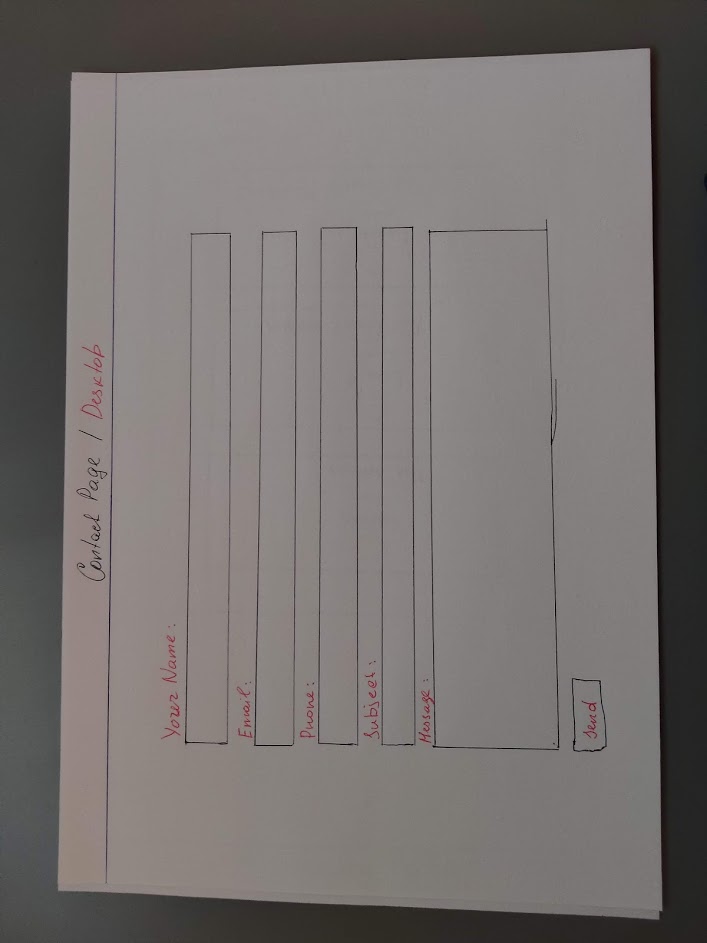 Contact Page / Desktop
Your Name:
Email:
Phone:
Subject:
Message:
Send